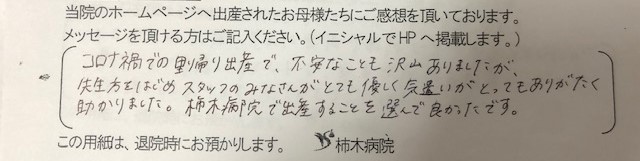 当院のホームページへ出産されたお母様たちにご感想を頂いております。
メッセージを頂ける方はご記入ください。(イニシャルでHPへ掲載します。)
コロナ禍での里帰り出産で、不安なことも沢山ありましたが、
先生方をはじめスタッフのみなさんがとても優しく気遣いがとってもありがたく
助かりました。柿木病院で出産することを選んで良かったです。
この用紙は、退院時にお預かりします。 柿木病院